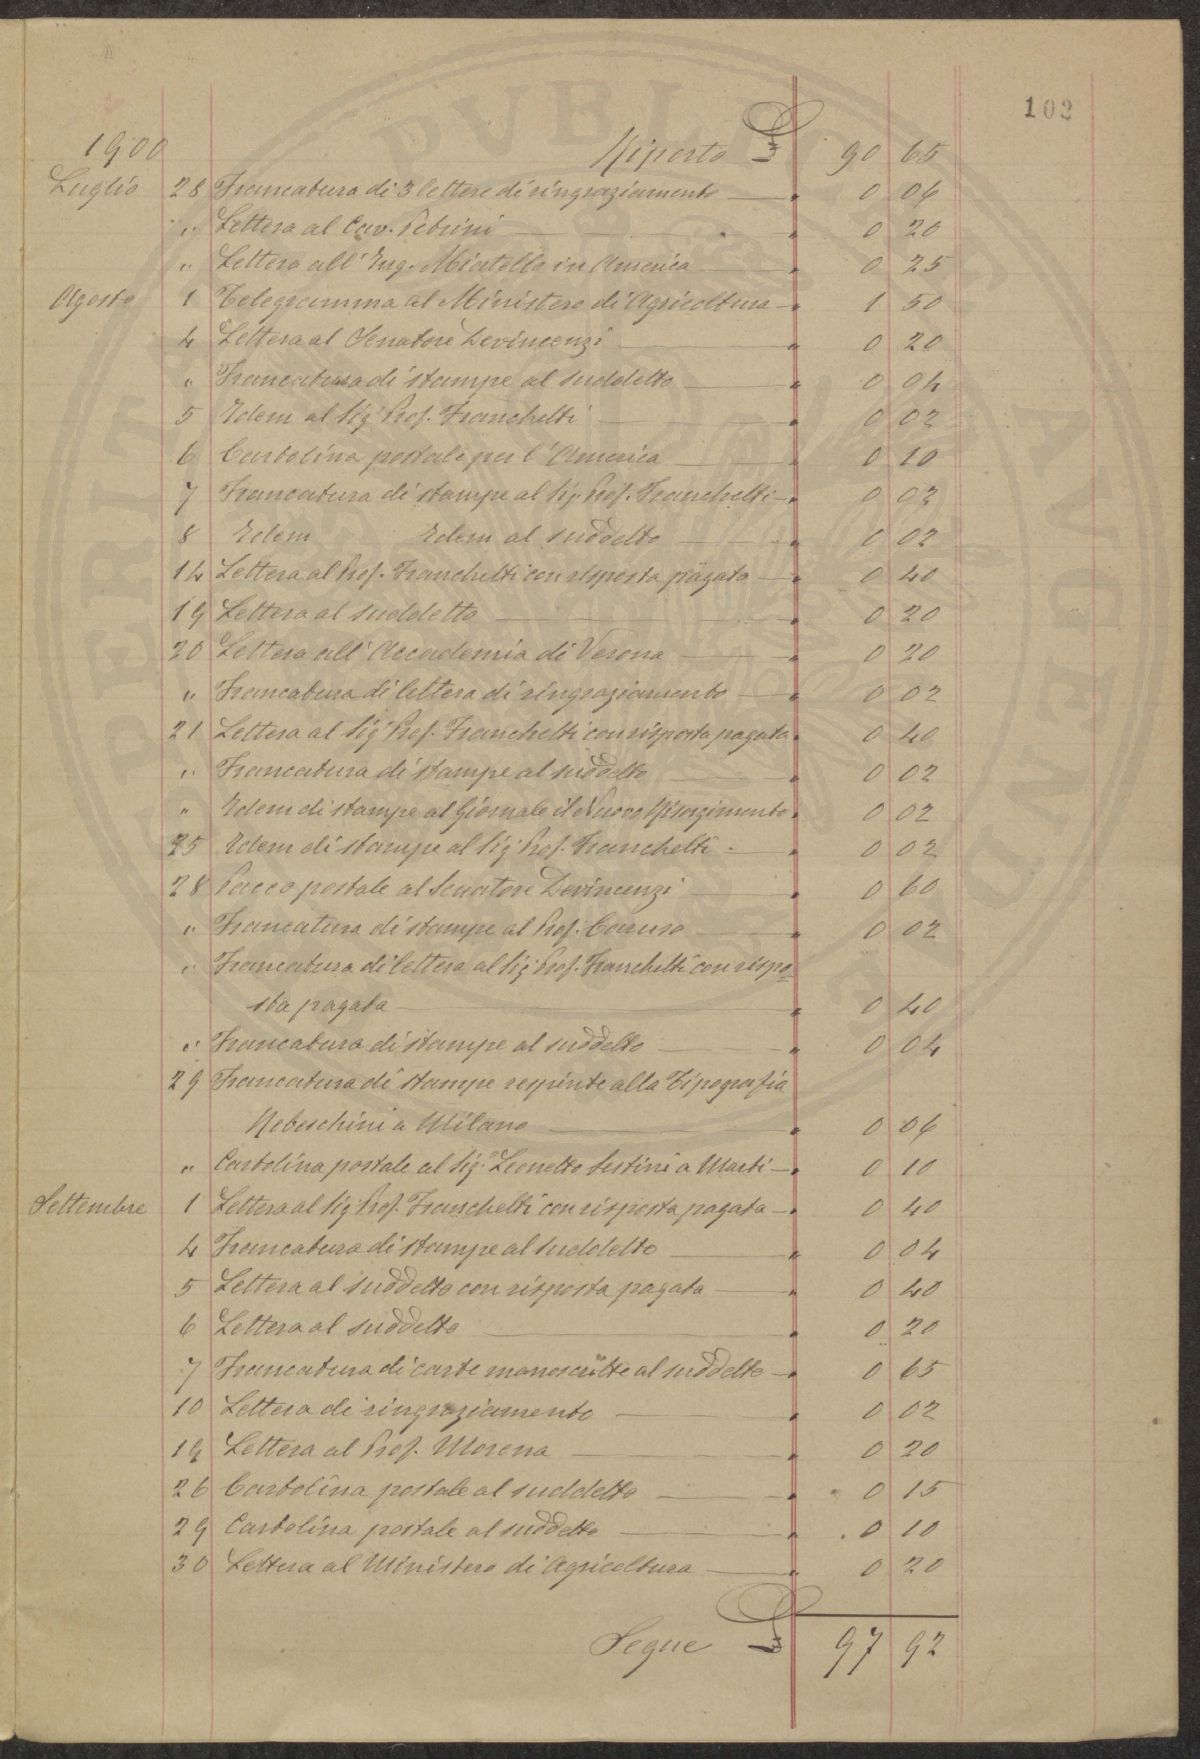 102
1900 Riporto £ 90 65
Luglio 28 Francatura di 3 lettere di ringraziamento " 0 06
" Lettera al Cav. Petrini " 0 20
" Lettera all'Ing. Miatello in America " 0 25
Agosto 1 Telegramma al Ministero di Agricoltura " 1 50
4 Lettera al Senatore Devincenzi " 0 20
" Francatura di stampe al suddetto " 0 04
5 Idem al Sig. Prof. Franchetti " 0 02
6 Cartolina postale per l'America " 0 10
7 Francatura di stampe al Sig. Prof. Franchetti " 0 02
8 Idem Idem al suddetto " 0 02
14 Lettera al Prof. Franchetti con risposta pagata " 0 40
19 Lettera al suddetto " 0 20
20 Lettera all'Accademia di Verona " 0 20
" Francatura di lettera di ringraziamento " 0 02
21 Lettera al Sig. Prof. Franchetti con risposta pagata " 0 40
" Francatura di stampe al suddetto " 0 02
" Idem di stampe al Giornale il Nuovo Risorgimento " 0 02
25 Idem di stampe al Sig. Prof. Franchetti " 0 02
28 Pacco postale al Senatore Devincenzi " 0 60
" Francatura di stampe al Prof. Caruso " 0 02
" Francatura di lettera al Sig. Prof. Franchetti con rispo=
sta pagata " 0 40
" Francatura di stampe al suddetto " 0 04
29 Francatura di stampe respinte alla Tipografia
Rebeschini a Milano " 0 06
" Cartolina postale al Sig. Leonetto Sestini a Marti " 0 10
Settembre 1 Lettera al Sig. Prof. Franchetti con risposta pagata " 0 40
4 Francatura di stampe al suddetto " 0 04
5 Lettera al suddetto con risposta pagata " 0 40
6 Lettera al suddetto " 0 20
7 Francatura di carte manoscritte al suddetto " 0 65
10 Lettera di ringraziamento " 0 02
19 Lettera al Prof. Morena " 0 20
26 Cartolina postale al suddetto " 0 15
29 Cartolina postale al suddetto " 0 10
30 Lettera al Ministero di Agricoltura " 0 20
Segue £ 97 92